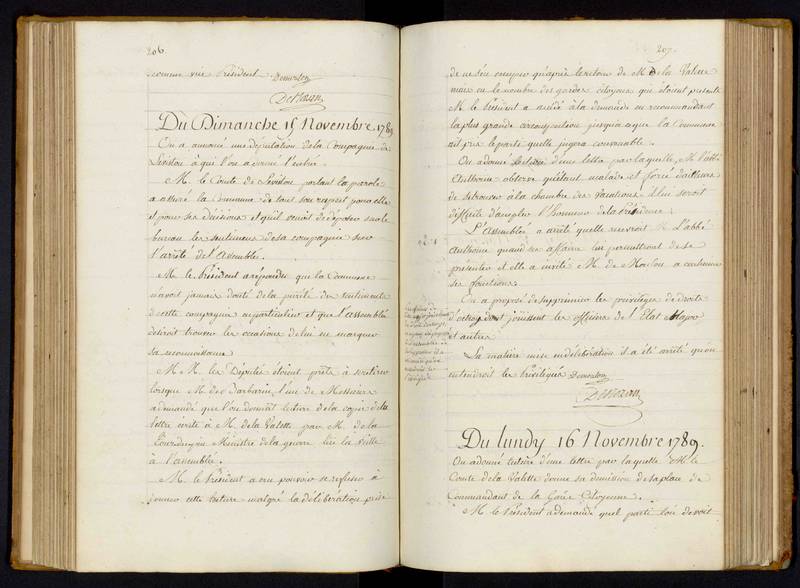 206.
comme vice Président Demeulon
Du Dimanche 15 Novembre 1789
On a annoncé une députation de la Compagnie de
à qui l'on a donné l'entrée.
M. le Comte de portant la parole
a assuré la Commune de tout son respect pour elle
et pour ses décisions et qu'il venoit de déposer sur le
bureau les sentimens de sa compagnie sur
l'arrêté de l'Assemblée.
M. le Président a répondu que la Commune
n'avoit jamais douté de la pureté des sentimens
de cette compagnie en particulier et que l'assemblée
désiroit trouver les occasions de lui en marquer
sa reconnoissance
M. M. les Députés étoient prêts à sortir
lorsque M. de Barbarin l'un de Messieurs
a demandé que l'on donnât lecture de la copie de la
lettre écrite à M. de la Valette par M. de la
Tour Dupin Ministre de la guerre lue la Veille
à l'assemblée.
M. le Président a cru pouvoir se refuser à
donner cette lecture malgré la délibération prise
207.
de ne s'en occuper qu'après le retour de M. De la Valette
mais vu le nombre des gardes citoyens qui étoient présents
M. le Président a accédé à la demande en recommandant
la plus grande circonspection jusqu'à ce que la Commune
ait pris le parti quelle jugera convenable.
On a donné lecture d'une lettre par laquelle M. l'abbé
Anthoine observe qu'étant malade et forcé d'ailleurs
de se trouver à la chambre des Vacations il lui seroit
difficile d'accepter l'honneur de la Présidence
L'Assemblée a arrêté quelle recevroit M. L'abbé
Anthoine quand ses affaires lui permettront de se
présenter et elle a invité M. de à continuer
ses fonctions.
On a proposé de supprimer les privilèges de droits
d'octroy dont jouissent les officiers de l'Etat Major
et autres
La matière mise en délibération il a été arrêté qu'on
entendroit les Privilégiés Demeulon
Du lundy 16 Novembre 1789.
On a donné lecture d'une lettre par laquelle M. le
Comte de la Valette donne sa démission de sa place de
Commandant de la Garde Citoyenne.
M. le Président a demandé quel parti l'on devoit